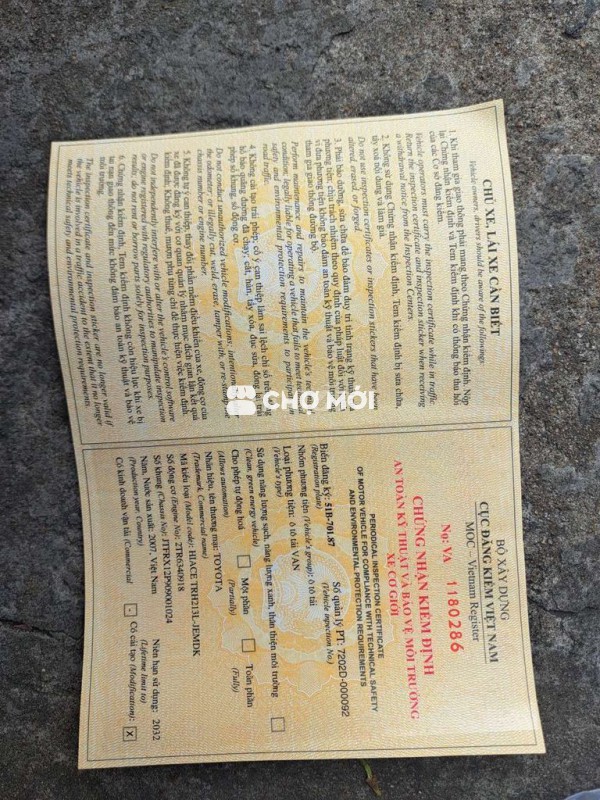 CHỦ XE, LÁI XE CẦN BIẾT
Vehicle owners, drivers should be aware of the followings:
1. Khi tham gia giao thông phải mang theo Chứng nhận kiểm định. Nộp
lại Chứng nhận kiểm định và Tem kiểm định khi có thông báo thu hồi
của các Cơ sở đăng kiểm.
Vehicle operators must carry the inspection certificate while in traffic.
Return the inspection certificate and inspection sticker when receiving
a withdrawal notice from the Inspection Centers.
2. Không sử dụng Chứng nhận kiểm định, Tem kiểm định bị sửa chữa,
tẩy xoá nội dung và làm giả.
Do not use inspection certificates or inspection stickers that have been
altered, erased, or forged.
3. Phải bảo dưỡng, sửa chữa để bảo đảm duy trì tình trạng kỹ thuật
phương tiện; chịu trách nhiệm theo quy định của pháp luật đối với
vi đưa phương tiện không bảo đảm an toàn kỹ thuật và bảo vệ môi trường
tham gia giao thông đường bộ.
Perform maintenance and repairs to maintain the vehicle's technical
condition; legally liable for operating a vehicle that fails to meet technical
safety and environmental protection requirements to participate in
road traffic.
4. Không cải tạo trái phép; cố ý can thiệp làm sai lệch chỉ số trên đồng
hồ báo quãng đường đã chạy; cắt, hàn, tẩy xoá, đục sửa, đóng lại trái
phép số khung, số động cơ.
Do not conduct unauthorized vehicle modifications; intentionally
the odometer; or illegally cut, weld, erase, tamper with, or re-stamp the
chassis number or engine number.
5. Không tự ý can thiệp, thay đổi phần mềm điều khiển của xe, động cơ của
xe đã được đăng ký với cơ quan quản lý nhằm mục đích gian lận kết quả
kiểm định; không thuê, mượn phụ tùng chỉ để thực hiện việc kiểm định.
Do not independently interfere with or alter the vehicle's control software
or engine registered with regulatory authorities to manipulate inspection
results; do not rent or borrow parts solely for inspection purposes.
6. Chứng nhận kiểm định, Tem kiểm định không còn hiệu lực khi xe bị
tai nạn giao thông đến mức không đảm bảo an toàn kỹ thuật và bảo vệ
môi trường.
The inspection certificate and inspection sticker are no longer valid if
the vehicle is involved in a traffic accident to the extent that it no longer
meets technical safety and environmental protection requirements.
BỘ XÂY DỰNG
CỤC ĐĂNG KIỂM VIỆT NAM
MOC - Vietnam Register
No: VA 1180286
CHỨNG NHẬN KIỂM ĐỊNH
AN TOÀN KỸ THUẬT VÀ BẢO VỆ MÔI TRƯỜNG
XE CƠ GIỚI
PERIODICAL INSPECTION CERTIFICATE
OF MOTOR VEHICLE FOR COMPLIANCE WITH TECHNICAL SAFETY
AND ENVIRONMENTAL PROTECTION REQUIREMENTS
Biển đăng ký: 51B-701.87 Số quản lý PT: 7202D-000092
(Registration plate) (Vehicle inpection No.)
Nhóm phương tiện (Vehicle's group): ô tô tải
Loại phương tiện: ô tô tải VAN
(Vehicle's type)
Sử dụng năng lượng sạch, năng lượng xanh, thân thiện môi trường
(Clean, green energy vehicle)
Cho phép tự động hoá Một phần Toàn phần
(Allows automation) (Partially) (Fully)
Nhãn hiệu, tên thương mại: TOYOTA
(Trademark, Commercial name)
Mã kiểu loại (Model code): HIACE TRH213L-JEMDK
Số động cơ (Engine No): 2TR6340918
Số khung (Chassis No): JTFRX12P909001024
Năm, Nước sản xuất: 2007, Việt Nam Niên hạn sử dụng: 2032
(Production year, Country) (Lifetime limit to)
Có kinh doanh vận tải (Commercial - Có cải tạo (Modification): X
CHỢ MỚI